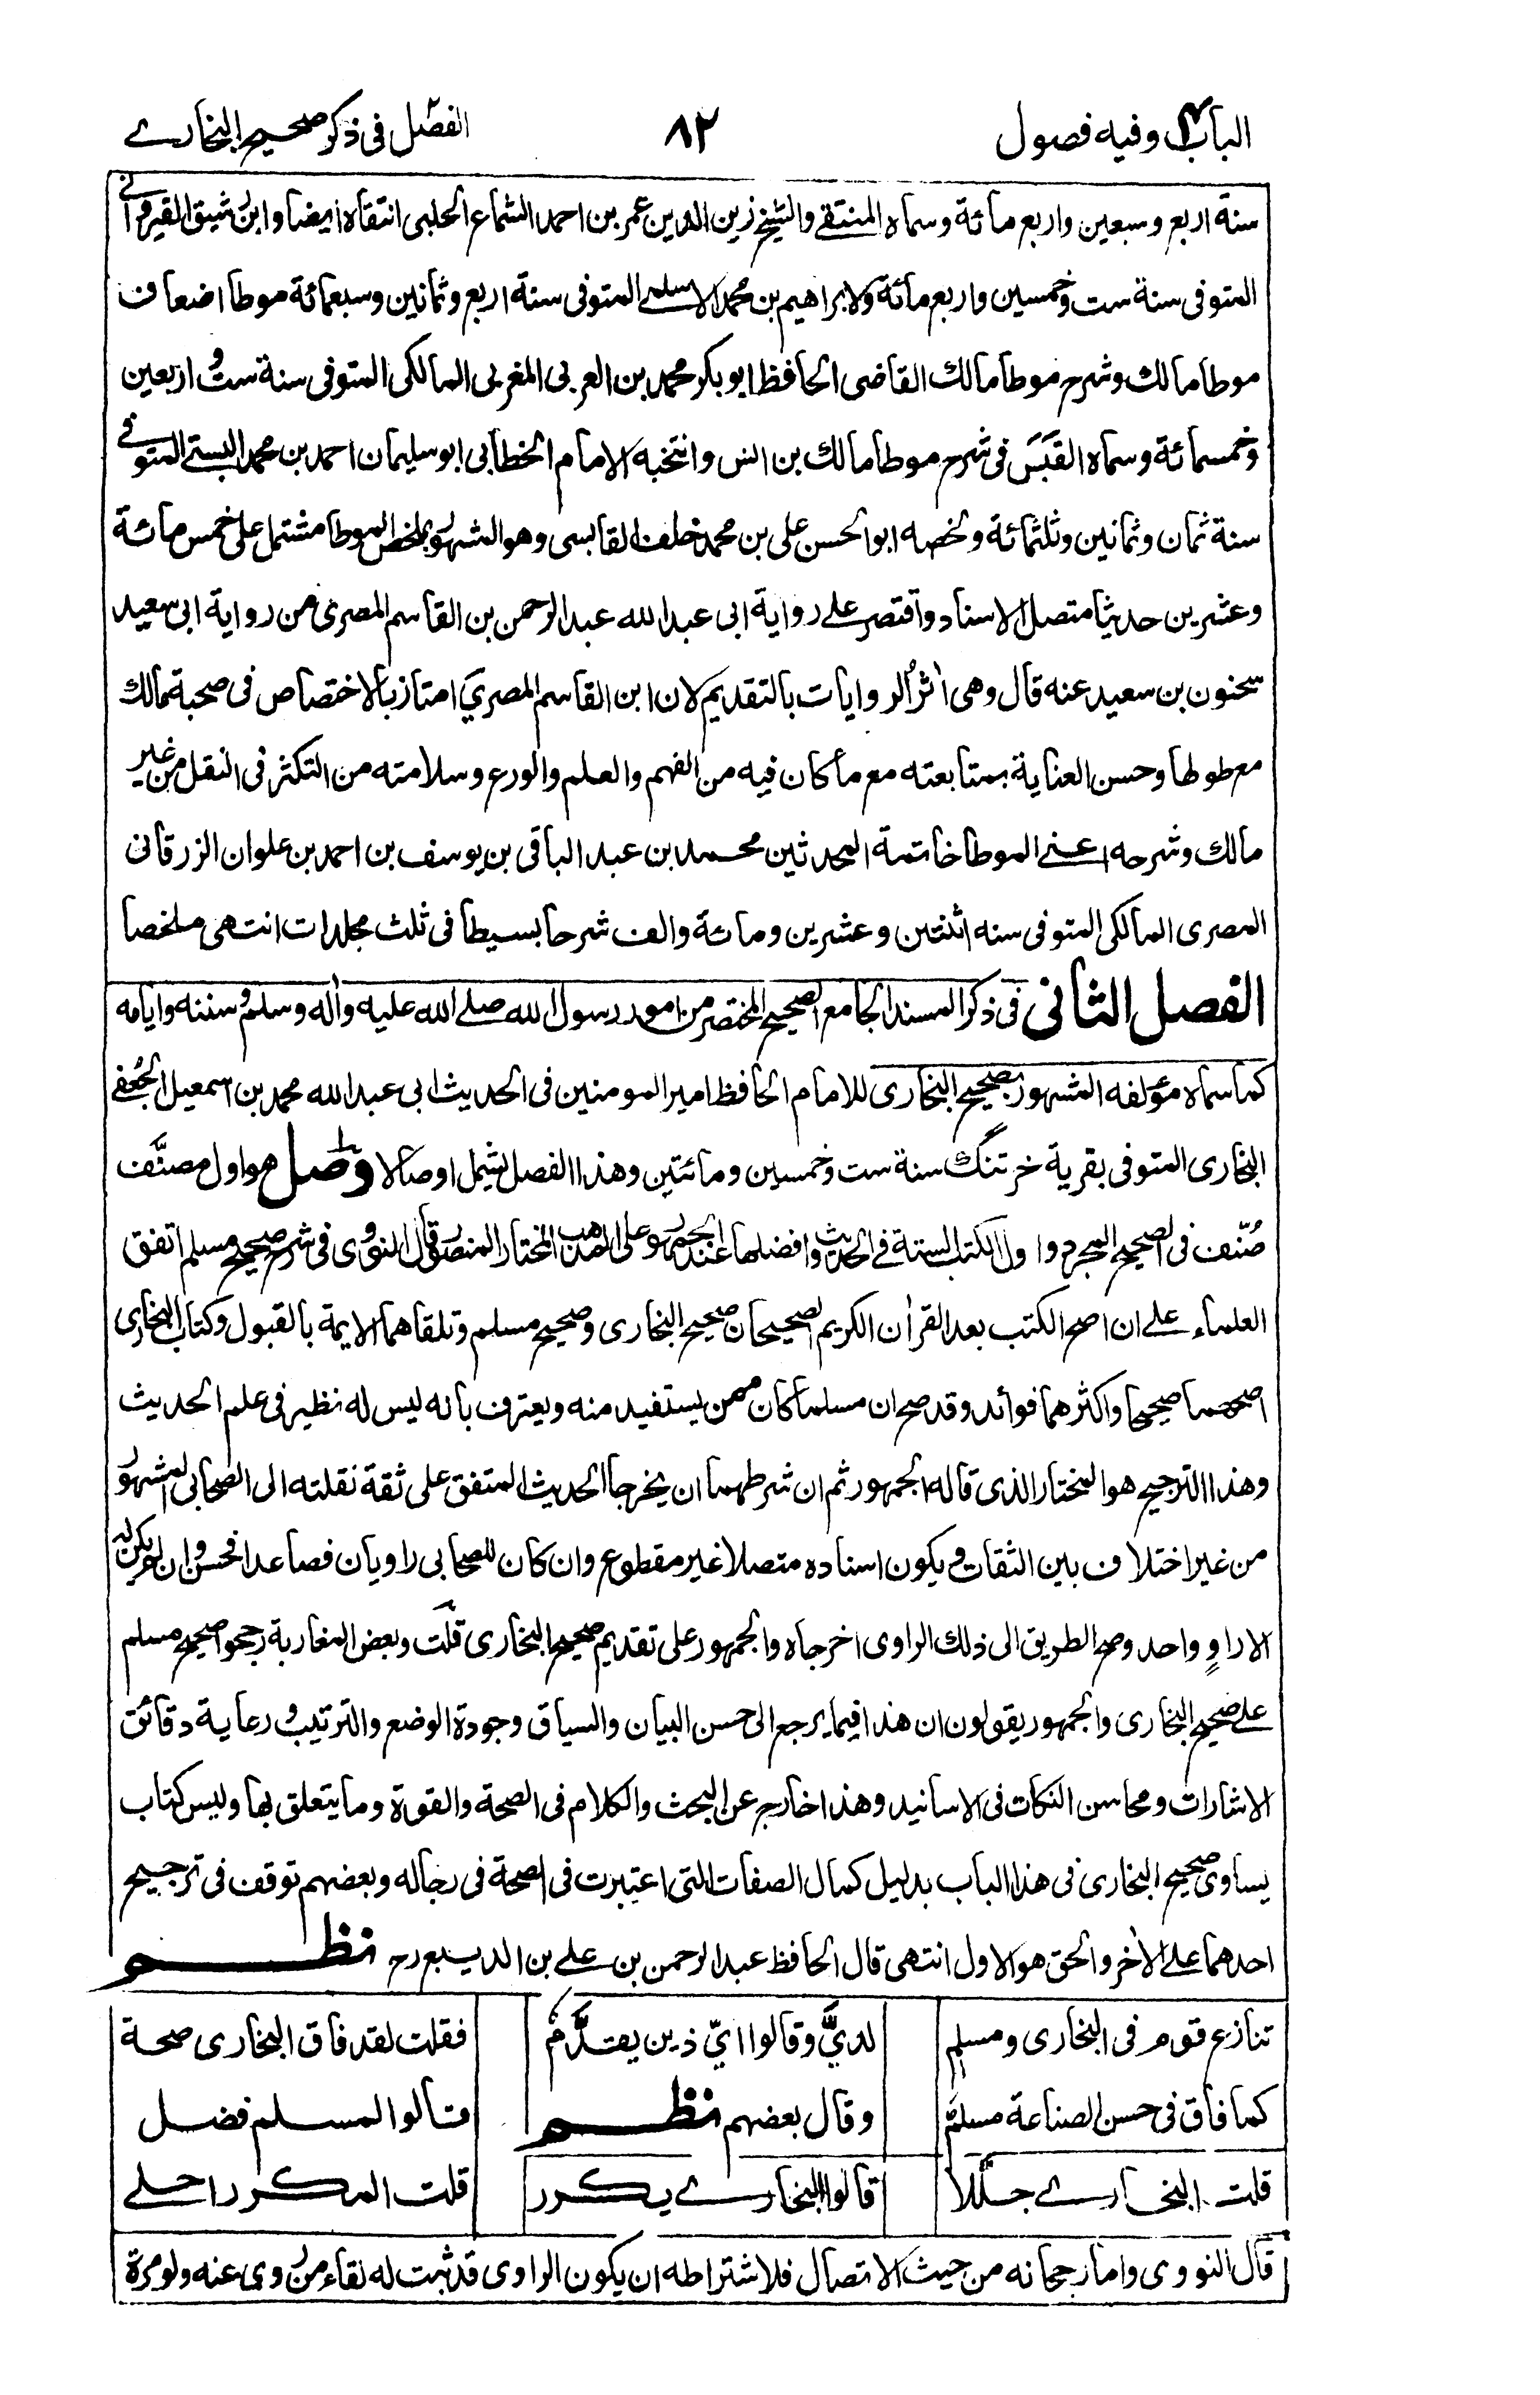 الباب وفيه فصول
٨٢
الفصل في ذكر صحيح البخارى
سنة اربع وسبعين واربع مائة وسماه المنتقى والشيخ زين الدين عمر بن احمد الشماع الحلبى انتقاه ايضا وابن رشيق القيروانى
المتوفى سنة ست وخمسين واربع مائة ولابراهيم بن محمد الاسلمى المتوفى سنة اربع وثمانين وسبعمائة موطا اضعاف
موطا مالك وشرح موطا مالك القاضى الحافظ ابو بكر محمد بن العربى المغربى المالكى المتوفى سنة ست واربعين
وخمسمائة وسماه القَبَس فى شرح موطا مالك بن انس وانتخبه الامام الخطابى ابو سليمان احمد بن محمد البستى المتوفى
سنة ثمان وثمانين وثلثمائة ولخصه ابو الحسن على بن محمد خلف القابسى وهو المشهور بملخص الموطا مشتمل على خمس مائة
وعشرين حديثا متصل الاسناد واقتصر على رواية ابى عبد الله عبد الرحمن بن القاسم المصرى من رواية ابى سعيد
سحنون بن سعيد عنه قال وهى اٰثر الروايات بالتقديم لان ابن القاسم المصرى امتاز بالاختصاص فى صحبة مالك
مع طولها وحسن العناية بمتابعته مع ما كان فيه من الفهم والعلم والورع وسلامته من التكثر فى النقل من غير
مالك وشرحه اعنى الموطا خاتمة المحدثين محمد بن عبد الباقى بن يوسف بن احمد بن علوان الزرقانى
المصرى المالكى المتوفى سنه اثنتين وعشرين ومائة والف شرحا بسيطا فى ثلث مجلدات انتهى ملخصا
الفصل الثانى فى ذكر المسند الجامع الصحيح المختصر من امور رسول الله صلے الله عليه واٰله وسلم وسننه وايامه
كما سماه مؤلفه المشهور بصحيح البخارى للامام الحافظ امير المومنين فى الحديث ابى عبد الله محمد بن اسمعيل الجُعفى
البخارى المتوفى بقرية خرتنگ سنة ست وخمسين ومائتين وهذا الفصل يشمل اوصالا وصل هو اول مصنَّف
صُنّف فى الصحيح المجرد واول الكتب الستة فى الحديث وافضلها عند الجمهور على المذهب المختار المنصور قال النووى فى شرح صحيح مسلم اتفق
العلماء على ان اصح الكتب بعد القراٰن الكريم الصحيحان صحيح البخارى وصحيح مسلم وتلقاهما الايمة بالقبول وكتاب البخارى
اصحهما صحيحا واكثرهما فوائد وقد صح ان مسلما كان ممن يستفيد منه ويعترف بانه ليس له نظير فى علم الحديث
وهذا الترجيح هو المختار الذى قاله الجمهور ثم ان شرطهما ان يخرجا الحديث المتفق على ثقة نقلته الى الصحابى المشهور
من غير اختلاف بين الثقات ويكون اسناده متصلا غير مقطوع وان كان للصحابى راويان فصاعدا فحسن وان لم يكن له
الا راوٍ واحد وصح الطريق الى ذلك الراوى اخرجاه والجمهور على تقديم صحيح البخارى قلت وبعض المغاربة رجحوا صحيح مسلم
على صحيح البخارى والجمهور يقولون ان هذا فيما يرجع الى حسن البيان والسياق وجودة الوضع والترتيب ورعاية دقائق
الاشارات ومحاسن النكات فى الاسانيد وهذا خارج عن البحث والكلام فى الصحة والقوة وما يتعلق بها وليس كتاب
يساوى صحيح البخارى فى هذا الباب بدليل كمال الصفات التى اعتبرت فى الصحة فى رجاله وبعضهم توقف فى ترجيح
احدهما على الاٰخر والحق هو الاول انتهى قال الحافظ عبد الرحمن بن على بن الديبع رح نظم
تنازع قوم فى البخارى ومسلم لدىَّ وقالوا اىّ ذين يقدَّم فقلت لقد فاق البخارى صحة
كما فاق فى حسن الصناعة مسلمٌ وقال بعضهم نظم قالوا المسلم فضل
قلت البخارى جلّلا قالوا البخارى يكرر قلت المكرر احلى
قال النووى واما رجحانه من حيث الاتصال فلاشتراطه ان يكون الراوى قد ثبت له لقاء من روى عنه ولو مرة